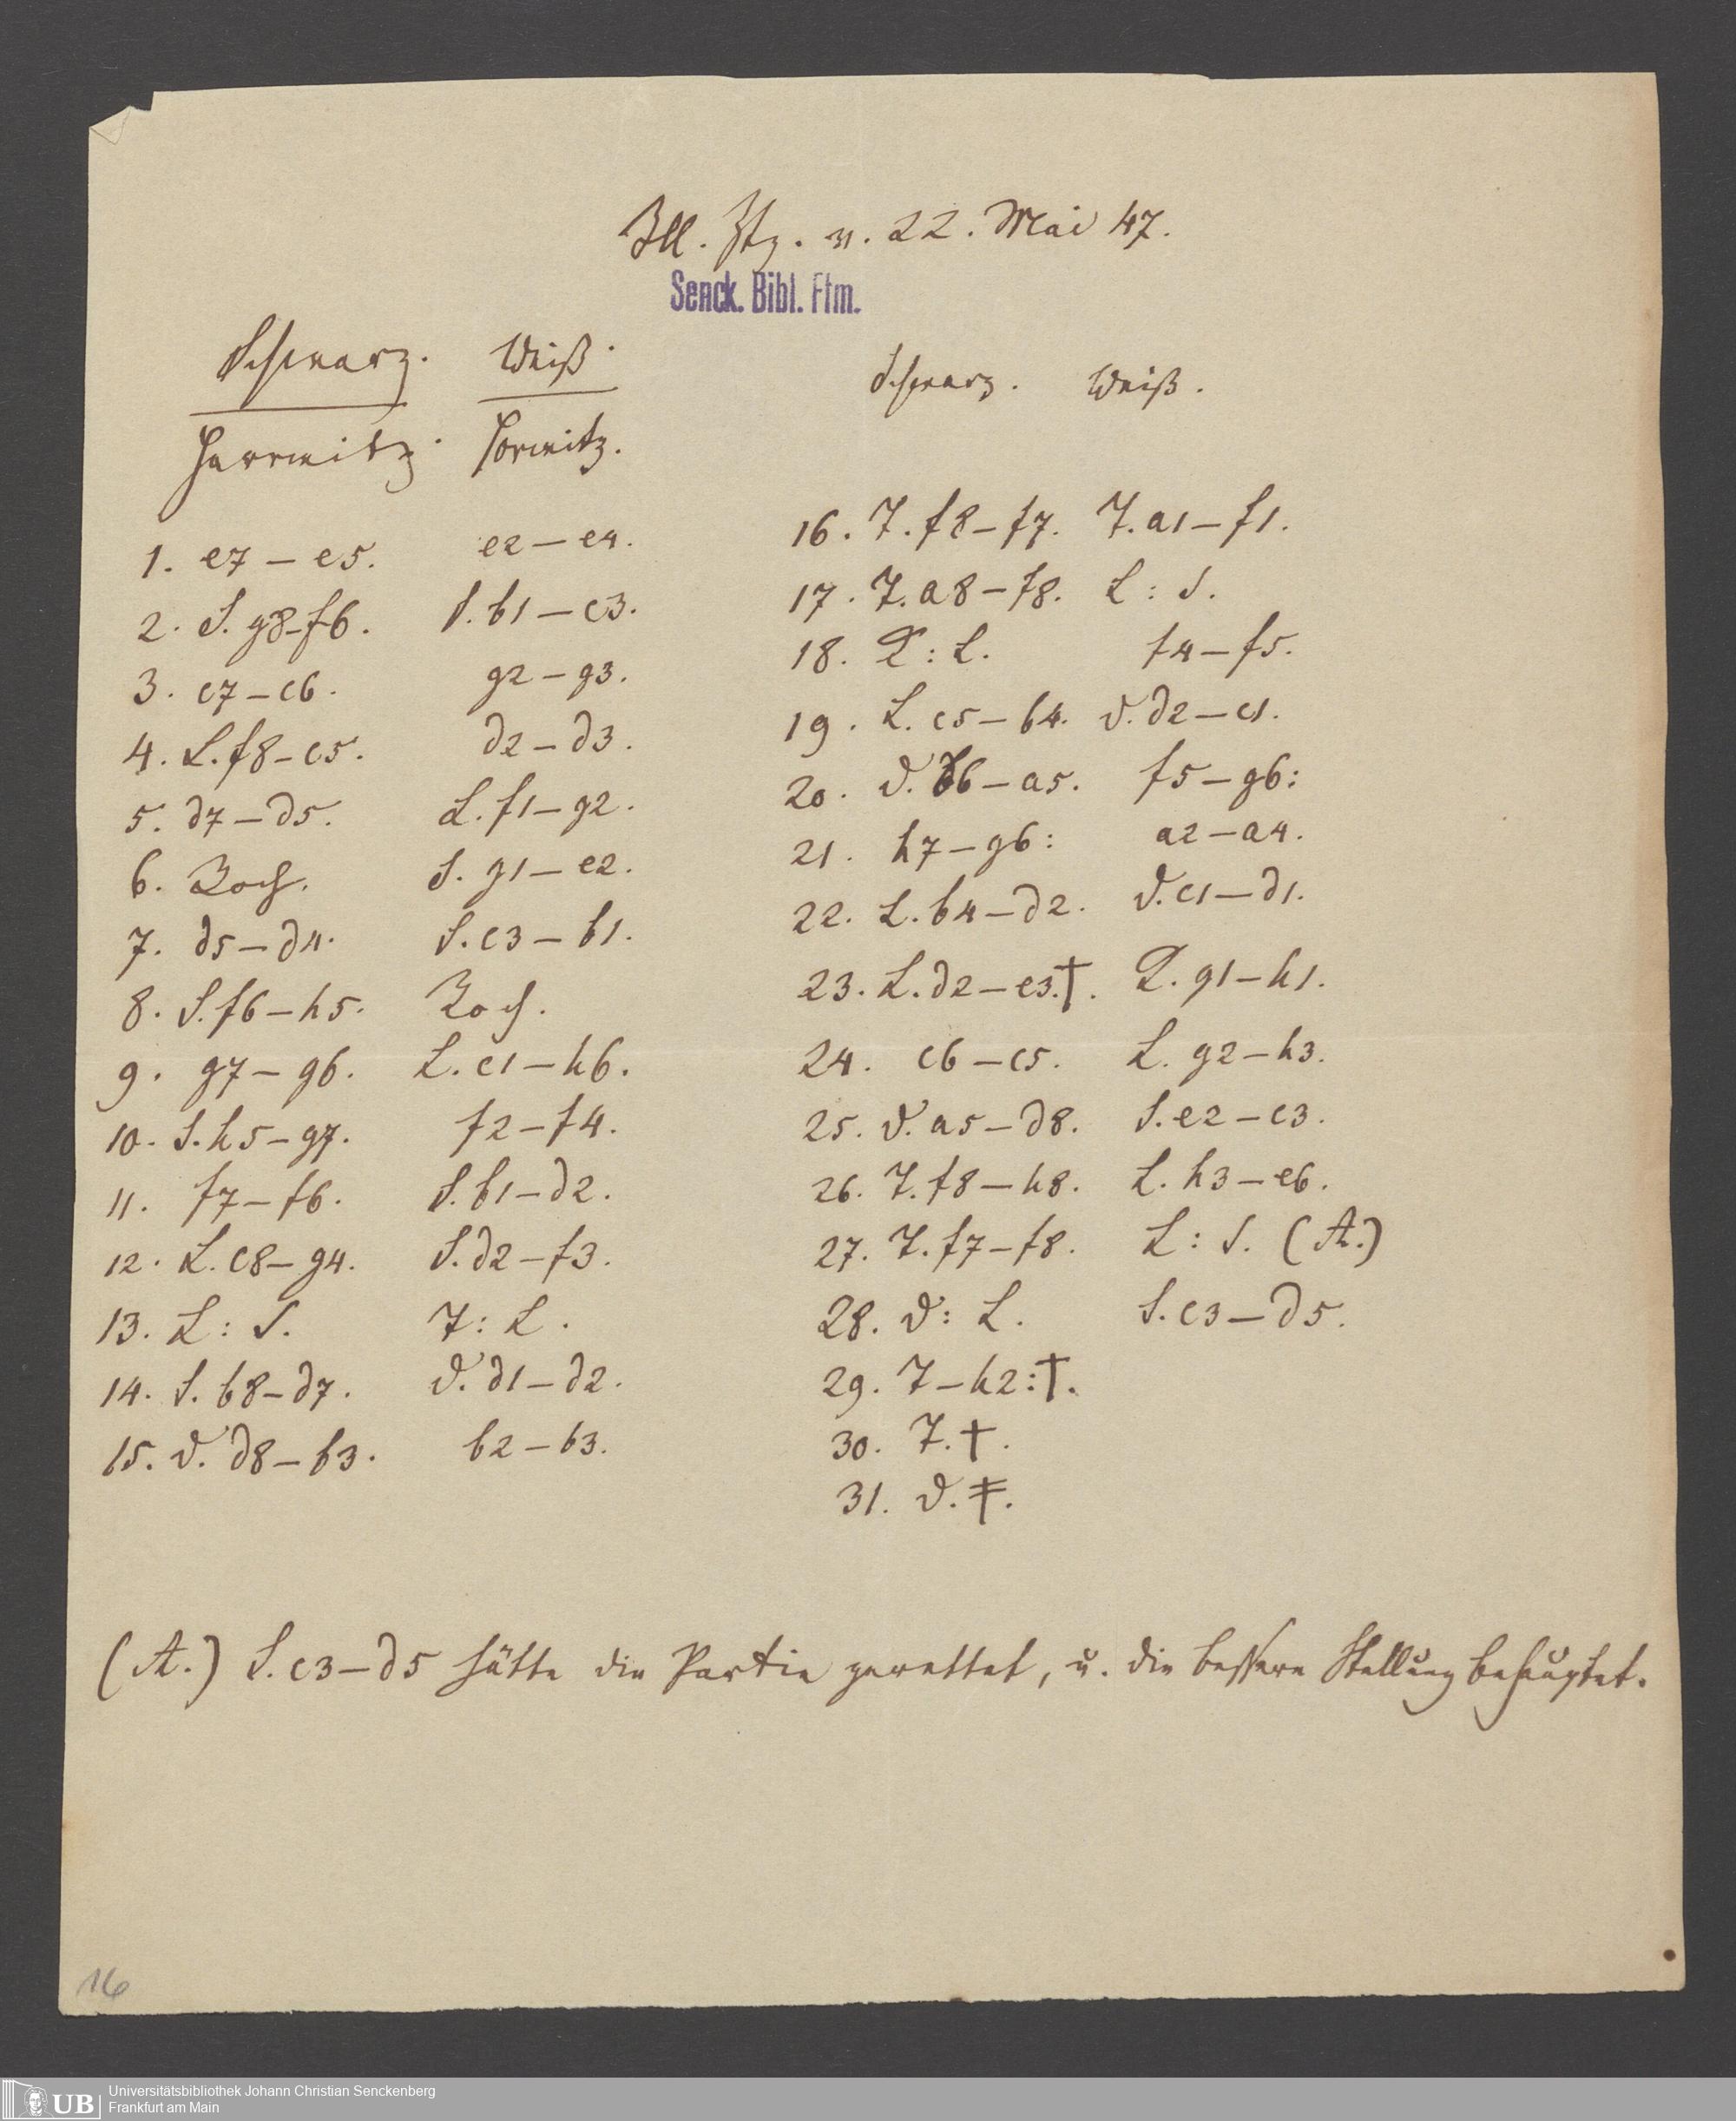 Ill. Ztg. v. 22. Mai 47.
Senck. Bibl. Ffm.
Schwarz. Weiß.
Harrwitz. Horwitz.
1. e7 – e5. e2 – e4.
2. S. g8–f6. S. b1 – c3.
3. c7 – c6. g2 – g3.
4. L. f8 – c5. d2 – d3.
5. d7 – d5. L. f1 – g2.
6. Roch. S. g1 – e2.
7. d5 – d4. S. c3 – b1.
8. S. f6 – h5. Roch.
9. g7 – g6. L. c1 – h6.
10. S. h5 – g7. f2 – f4.
11. f7 – f6. S. b1 – d2.
12. L. c8 – g4. S. d2 – f3.
13. L : S. T : L.
14. S. b8 – d7. D. d1 – d2.
15. D. d8 – b3. b2 – b3.
Schwarz. Weiß.
16. T. f8 – f7. T. a1 – f1.
17. T. a8 – f8. L : S.
18. K : L. f4 – f5.
19. L. c5 – b4. D. d2 – c1.
20. D. b6 – a5. f5 – g6:
21. h7 – g6: a2 – a4.
22. L. b4 – d2. D. c1 – d1.
23. L. d2 – e3.†. K. g1 – h1.
24. c6 – c5. L. g2 – h3.
25. D. a5 – d8. S. e2 – c3.
26. T. f8 – h8. L. h3 – e6.
27. T. f7 – f8. L : S. (A.)
28. D : L. S. c3 – d5.
29. T – h2:†.
30. T. †.
31. D. ‡.
(A.) S. c3 – d5 hätte die Partie gerettet, u. die bessere Stellung behauptet.
16
UB
Universitätsbibliothek Johann Christian Senckenberg
Frankfurt am Main